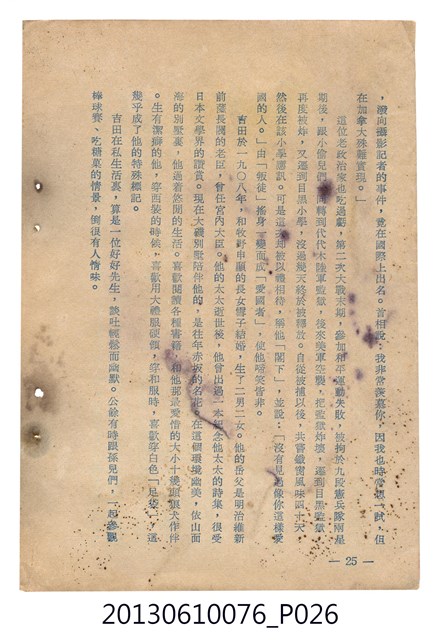 ，潑向攝影記者的事件，竟在國際上出名。首相說：我非常羨慕你，因我也時常想一試，但
在加拿大殊難實現。」
這位老政治家也吃過虧，第二次大戰末期，參加和平運動失敗，被拘於九段憲兵隊兩星
期後，跟小偷兒們一同轉到代代木陸軍監獄，後來美軍空襲，把監獄炸壞，遷到目黑監獄，
再度被炸，又遷到目黑小學，沒過幾天終於被釋放。自從被捕以後，共嘗鐵窗風味四十天
然後在該小學應訊。可是這次却被以禮相待，稱他「閣下」，並說：「沒有見過像你這樣愛
國的人。」由「叛徒」搖身一變而成「愛國者」，使他啼笑皆非。
吉田於一九〇八年，和牧野申顯的長女雪子結婚，生了二男二女。他的岳父是明治維新
前薩長閥的老臣，曾任宮內大臣。他的太太逝世後，他曾出過一本紀念他太太的詩集，很受
日本文學界的讚賞。現在大磯別墅陪伴他的，是往年赤坂的名花，在這個環境幽美、依山面
海的別墅裏，他過着悠閒的生活。喜歡閱讀各種書籍，和他那最愛惜的大小十幾頭狼犬作伴
。生有潔癖的他，穿西裝的時候，喜歡用大禮服硬領，穿和服時，喜歡穿白色「足袋」，這
幾乎成了他的特殊標記。
吉田在私生活裏，算是一位好好先生，談吐輕鬆而幽默。公餘有時跟孫兒們，一起參觀
棒球賽、吃糖菓的情景，倒很有人情味。
— 25 —
20130610076_P026